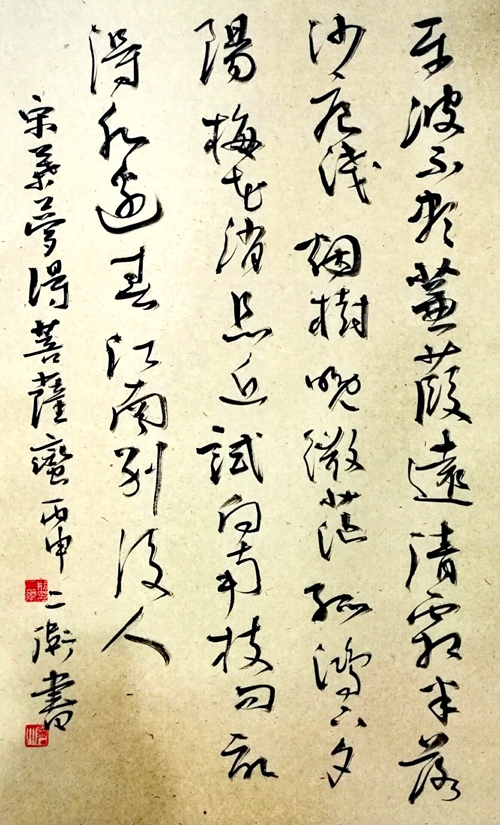 平波不尽蒹葭遠清霜半落
沙痕淺烟樹晚微茫孤鴻下夕
陽梅花消息近試向南枝問記
得水邊春江南别後人
宋葉夢得菩薩蠻丙申二衛書